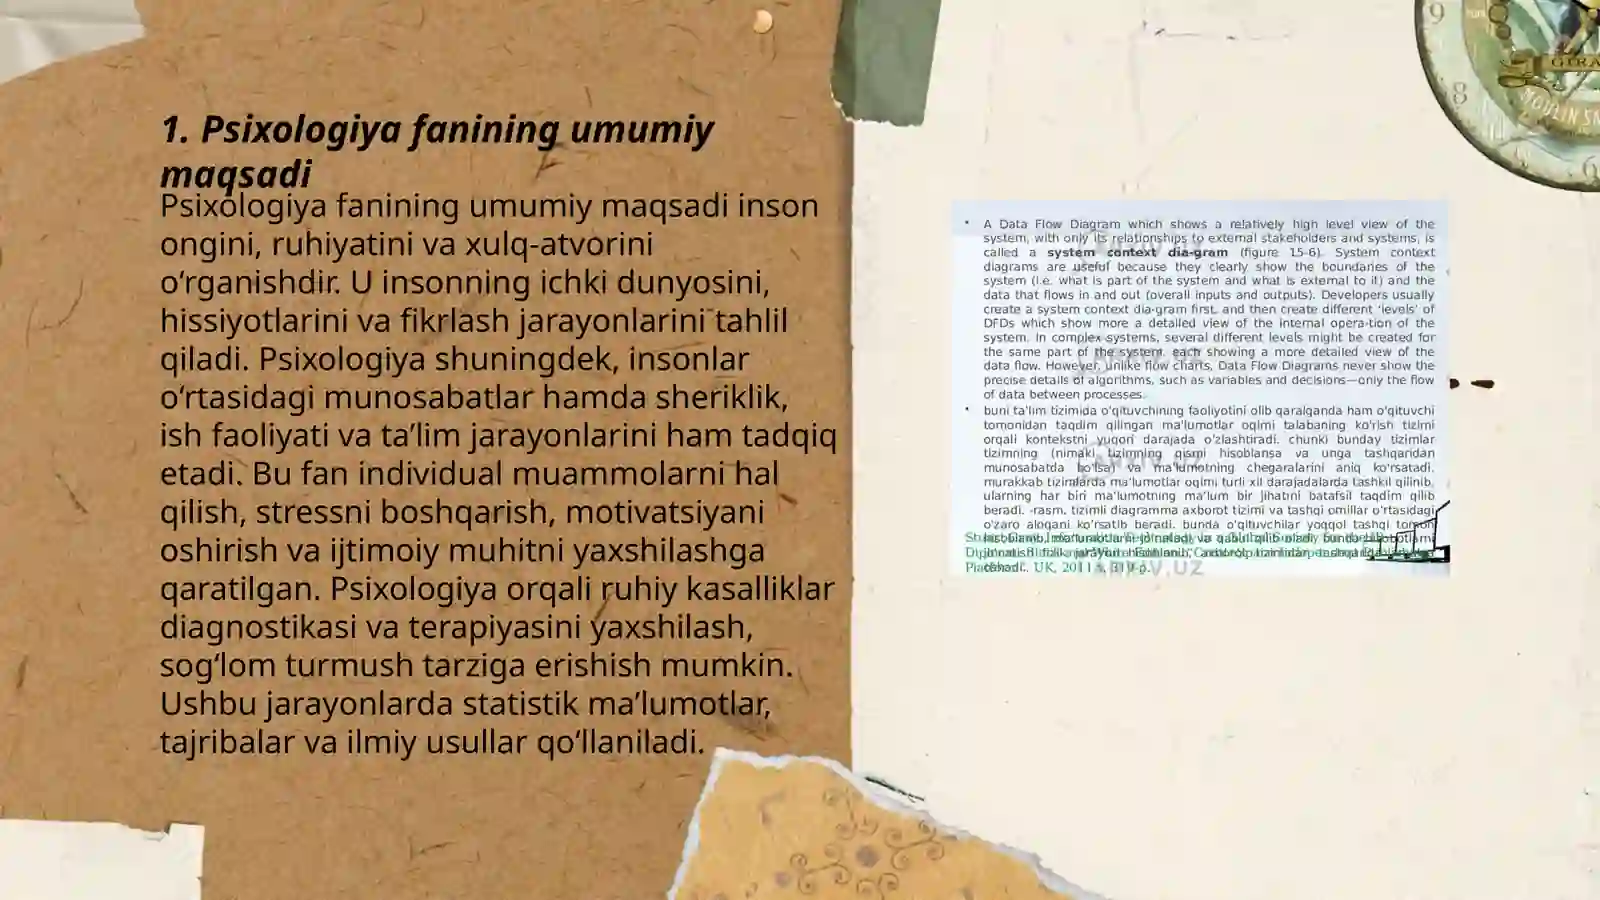 1. Psixologiya fanining umumiy
maqsadi
Psixologiya fanining umumiy maqsadi inson
ongini, ruhiyatini va xulq-atvorini
o‘rganishdir. U insonning ichki dunyosini,
hissiyotlarini va fikrlash jarayonlarini tahlil
qiladi. Psixologiya shuningdek, insonlar
o‘rtasidagi munosabatlar hamda sheriklik,
ish faoliyati va ta’lim jarayonlarini ham tadqiq
etadi. Bu fan individual muammolarni hal
qilish, stressni boshqarish, motivatsiyani
oshirish va ijtimoiy muhitni yaxshilashga
qaratilgan. Psixologiya orqali ruhiy kasalliklar
diagnostikasi va terapiyasini yaxshilash,
sog‘lom turmush tarziga erishish mumkin.
Ushbu jarayonlarda statistik ma’lumotlar,
tajribalar va ilmiy usullar qo‘llaniladi.
• A Data Flow Diagram which shows a relatively high level view of the
system, with only its relationships to external stakeholders and systems, is
called a system context dia-gram (figure 15-6). System context
diagrams are useful because they clearly show the boundaries of the
system (i.e. what is part of the system and what is external to it) and the
data that flows in and out (overall inputs and outputs). Developers usually
create a system context dia-gram first, and then create different ‘levels’ of
DFDs which show more a detailed view of the internal opera-tion of the
system. In complex systems, several different levels might be created for
the same part of the system, each showing a more detailed view of the
data flow. However, unlike flow charts, Data Flow Diagrams never show the
precise details of algorithms, such as variables and decisions—only the flow
of data between processes.
• buni ta'lim tizimida o'qituvchining faoliyotini olib qaralganda ham o'qituvchi
tomonidan taqdim qilingan ma'lumotlar oqimi talabaning ko'rish tizimi
orqali kontekstni yuqori darajada o'zlashtiradi. chunki bunday tizimlar
tizimning (nimaki tizimning qismi hisoblansa va unga tashqaridan
munosabatda bo'lsa) va ma'lumotning chegaralarini aniq ko'rsatadi.
murakkab tizimlarda ma'lumotlar oqimi turli xil darajadalarda tashkil qilinib,
ularning har biri ma'lumotning ma'lum bir jihatni batafsil taqdim qilib
beradi. -rasm. tizimli diagramma axborot tizimi va tashqi omillar o'rtasidagi
o'zaro aloqani ko'rsatib beradi. bunda o'qituvchilar yoqqol tashqi tomon
UK, 2011 y, 319-p.
ARXIV.UZ
9
8
6
MOULIN